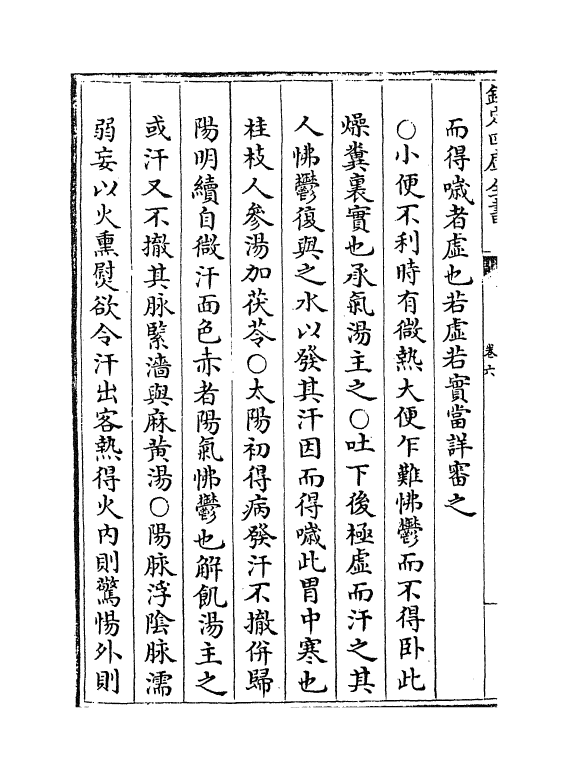 欽定四庫全書
卷六
而得噦者虛也若虛若實當詳審之
○小便不利時有微熱大便乍難怫鬱而不得卧此
燥糞裏實也承氣湯主之○吐下後極虛而汗之其
人怫鬱復與之水以發其汗因而得噦此胃中寒也
桂枝人參湯加茯苓○太陽初得病發汗不撤併歸
陽明續自微汗面色赤者陽氣怫鬱也解飢湯主之
或汗又不撤其脉緊濇與麻黃湯○陽脉浮陰脉濡
弱妄以火熏熨欲令汗出客熱得火内則驚惕外則